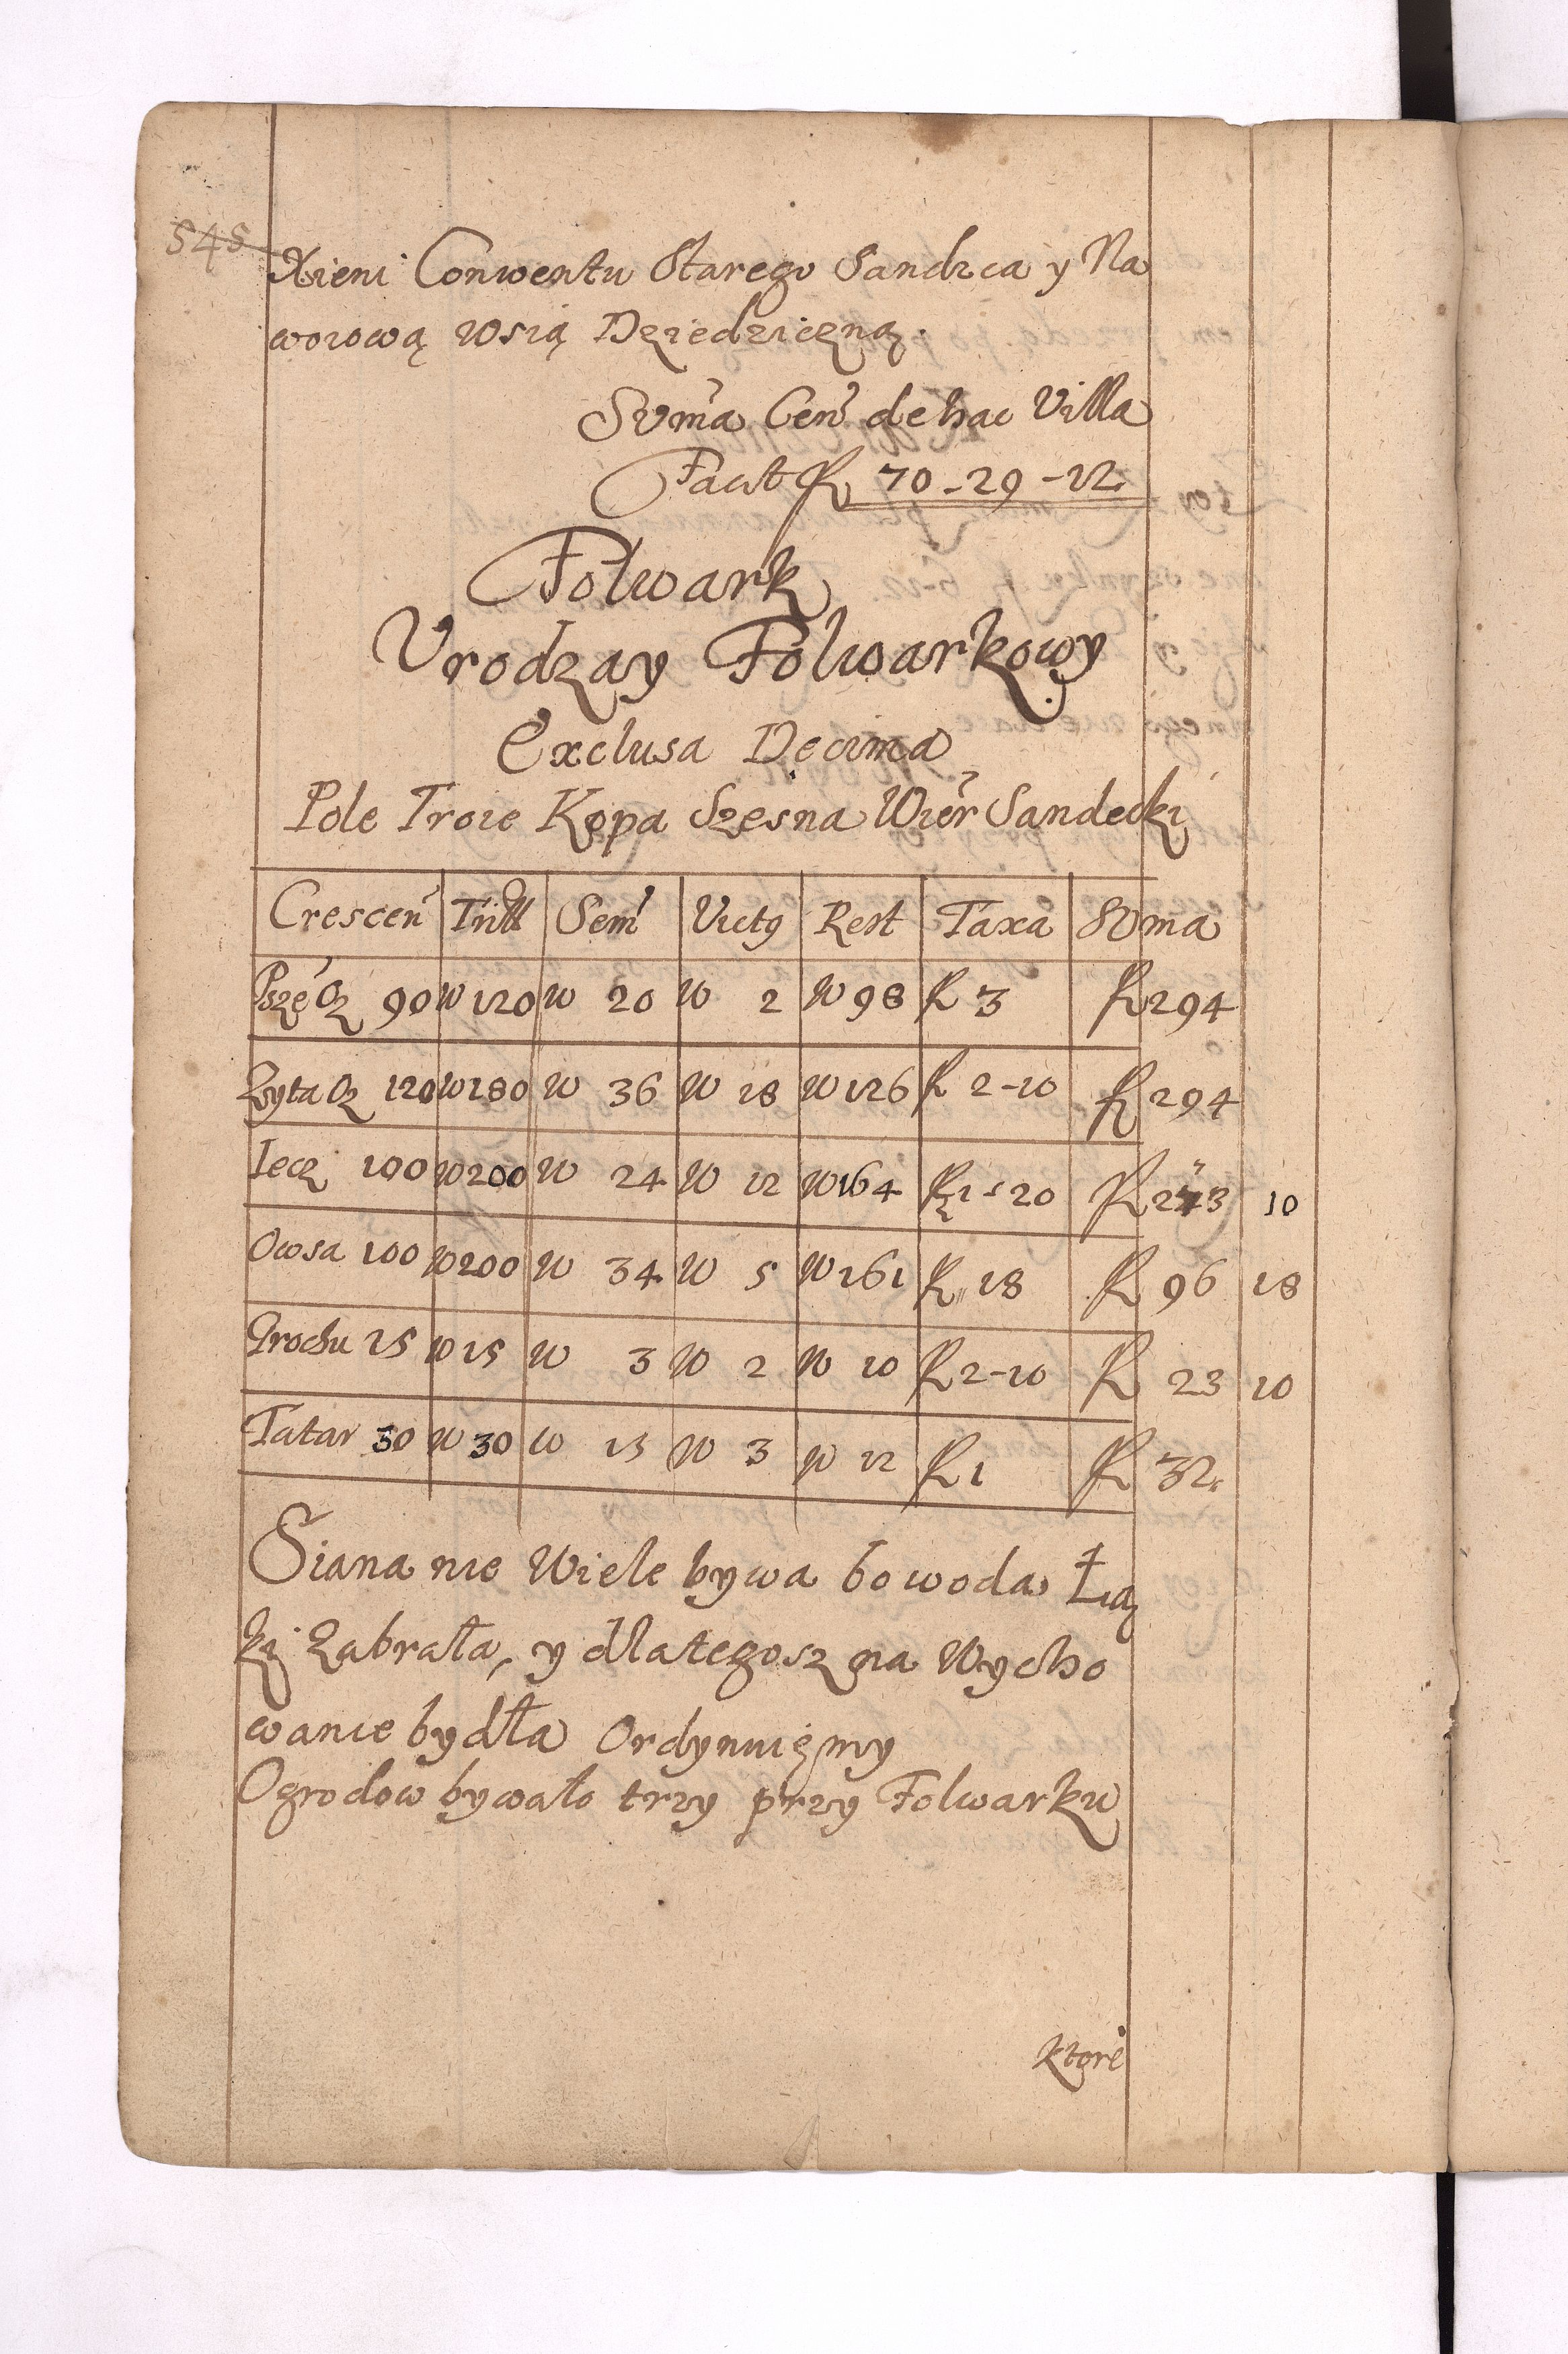 545
Xieni Conwentu Starego Sandzca y Na
woiową Wsią Dziedziczną.
Suma Cen de hac Villa
Facit fl 70-29-12.
Folwark
Vrodzay Folwarkowy
Exclusa Decima
Pole Troie Kopa Szesna Wier Sandecki
Crescen Trill Sem Vict9 Rest Taxa Suma
Psze Cz 90 W 120 W 20 W 2 W 98 fl 3 fl 294
Zyta Cz 120 W 180 W 36 W 18 W 126 fl 2-10 fl 294
Iecz 100 W 200 W 24 W 12 W 164 fl 1-20 fl 273 10
Owsa 100 W 200 W 34 W 5 W 161 fl 18 fl 96 18
Grochu 15 W 15 W 3 W 2 W 10 fl 2-10 fl 23 10
Tatar 30 W 30 W 15 W 3 W 12 fl 1 fl 32
Siana nie Wiele bywa bo woda Łą
ki Zabrała, y dlategosz na Wycho
wanie bydła Ordynuięmy
Ogrodow bywało trzy przy Folwarku
ktore